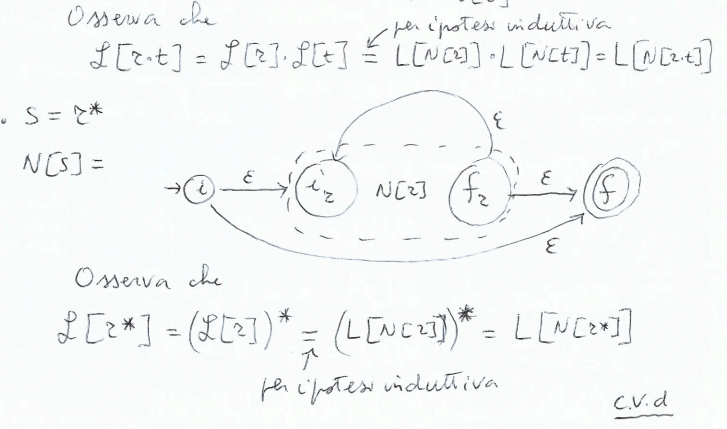 Osserva che
per ipotesi induttiva
ℒ[r·t] = ℒ[r]·ℒ[t] = L[N[r]]·L[N[t]] = L[N[r·t]]
. S = r*
N[S] =
ε
→ i ε i_r N[r] f_r ε f
ε
Osserva che
ℒ[r*] = (ℒ[r])* = (L[N[r]])* = L[N[r*]]
per ipotesi induttiva
c.v.d